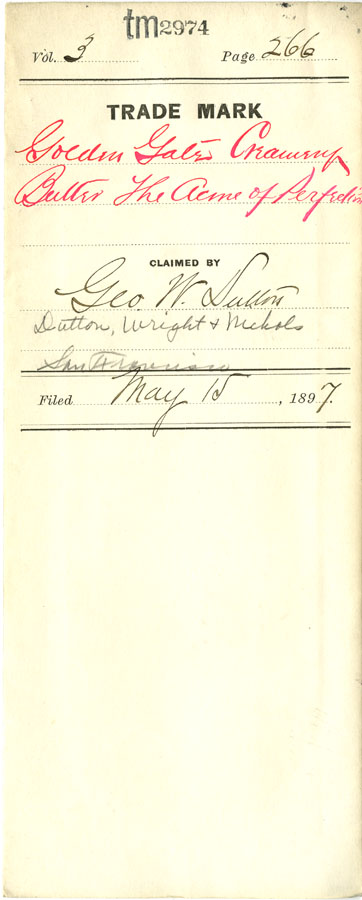 tm2974
Vol. 3 Page 266
TRADE MARK
Golden Gate Creamery
Butter The Acme of Perfection
CLAIMED BY
Geo. W. Dutton
Dutton, Wright & Nichols
San Francisco
Filed May 15, 1897.